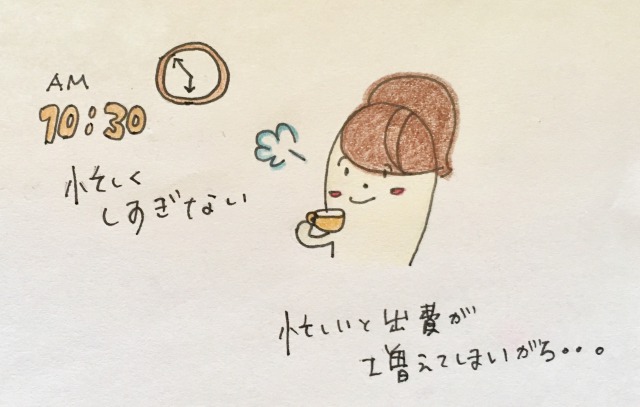 AM
10:30
忙しく
しすぎない
忙しいと出費が
増えてしまいがち...